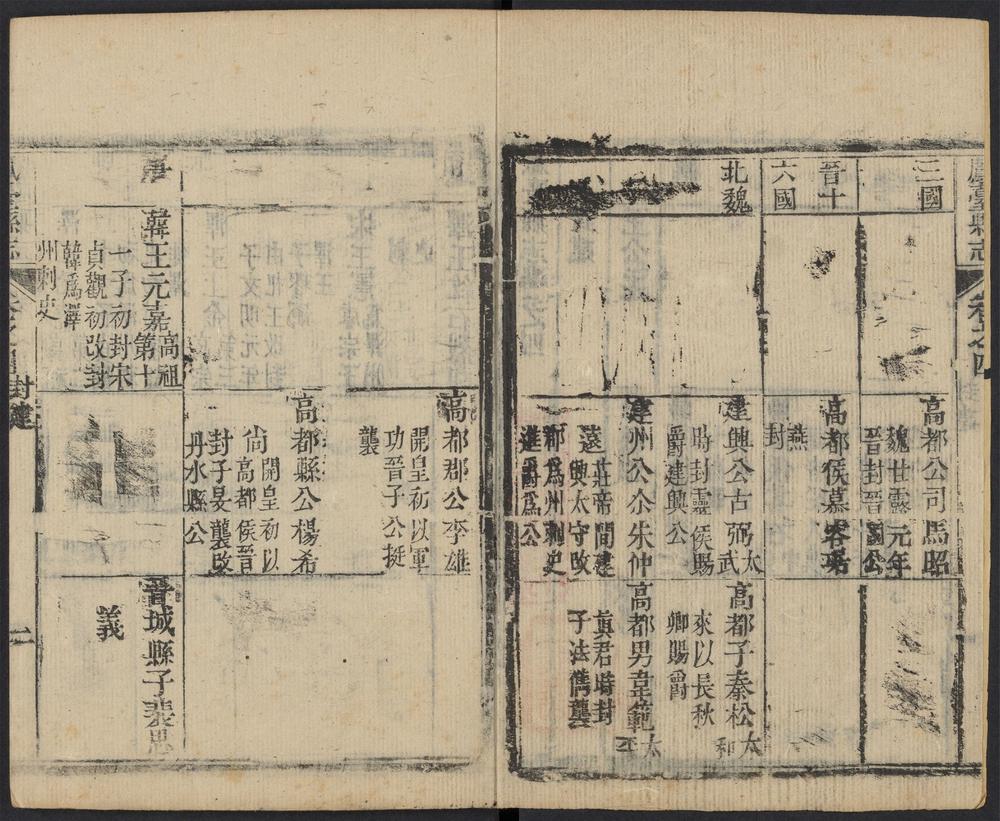 鳳臺縣志
卷之四
三國
高都公司馬昭
魏甘露元年
晉封晉國公
晉十
六國
高都侯慕容瑒
燕
封
北魏
建興公古弼太武
時封靈侯賜
爵建興公
高都子秦松太和
來以長秋
卿賜爵
建州公尒朱仲
遠莊帝間建
興太守改
郡爲州刺史
進爵爲公
高都男韋範太平
真君時封
子法儁襲
高都郡公李雄
開皇初以軍
功晉子公挺
襲
高都縣公楊希
尚開皇初以
高都侯晉
封子旻襲改
丹水縣公
唐
韓王元嘉高祖第十
一子初封宋
貞觀初改封
韓爲澤
州刺史
晉城縣子裴思
義
縣志
封建
二